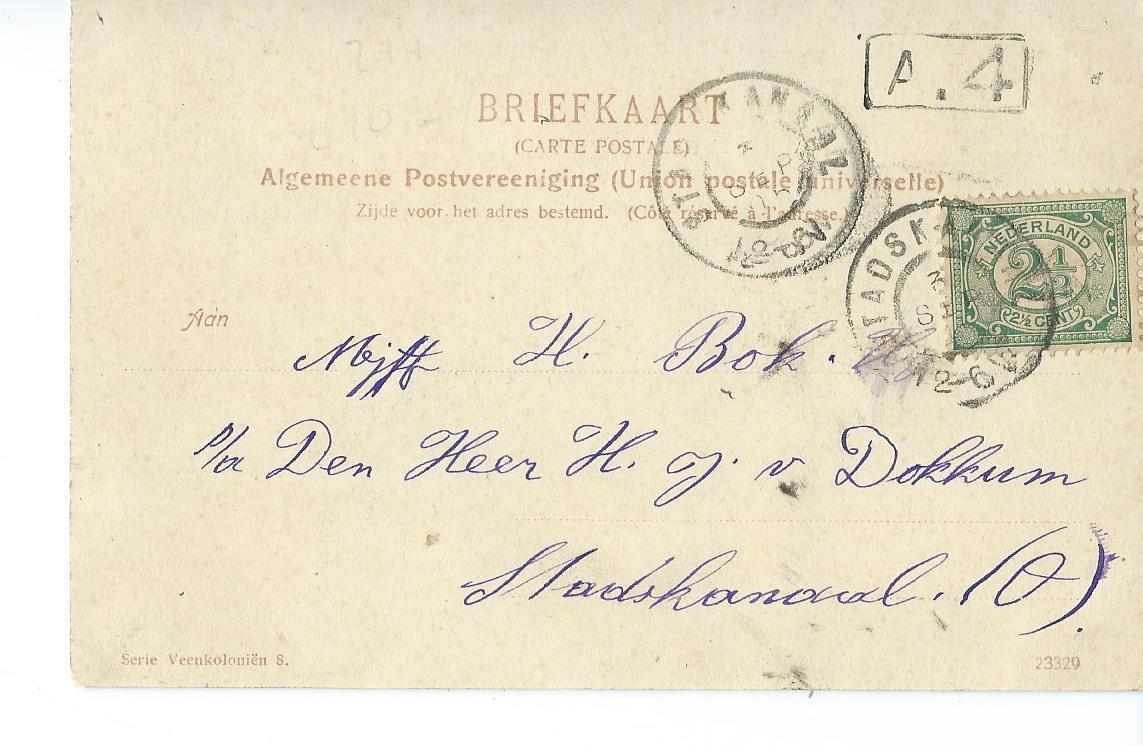 A.4
BRIEFKAART
(CARTE POSTALE)
Algemeene Postvereeniging (Union postale universelle)
Zijde voor het adres bestemd. (Côté réservé à l'adresse.)
STADSKANAAL
SEP
NEDERLAND
2½
2½ CENT
Aan
Mejff H. Bok.
p/a Den Heer H. J. v Dokkum
Stadskanaal. (O)
Serie Veenkoloniën 8.
23329